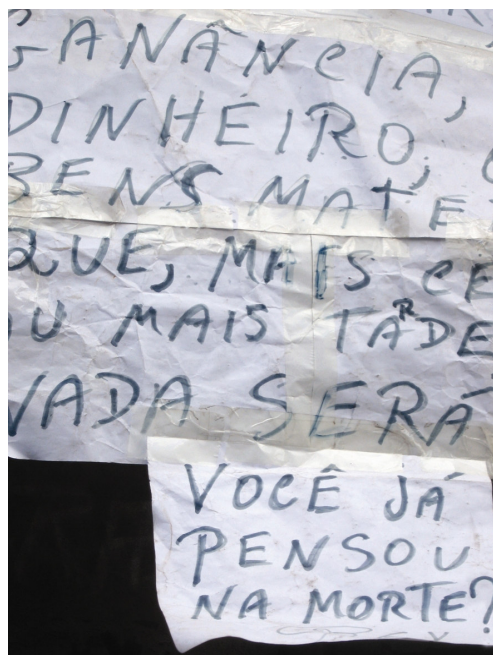 GANÂNCIA,
DINHEIRO,
BENS MATE
QUE, MAIS CE
OU MAIS TARDE
NADA SERÁ
VOCÊ JÁ
PENSOU
NA MORTE?